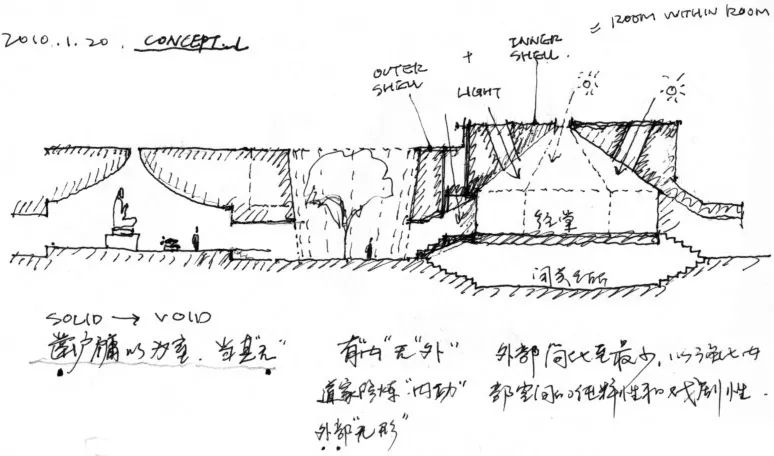 2010.1.20. CONCEPT.1
OUTER SHELL
+
LIGHT
INNER SHELL.
= ROOM WITHIN ROOM
经堂
闭关
SOLID → VOID
凿户牖以为室，当其"无"
有"内"无"外"
道家修炼"内功"
外部"无形"
外部简化至最少，以强化内
部空间的纯粹性和戏剧性.